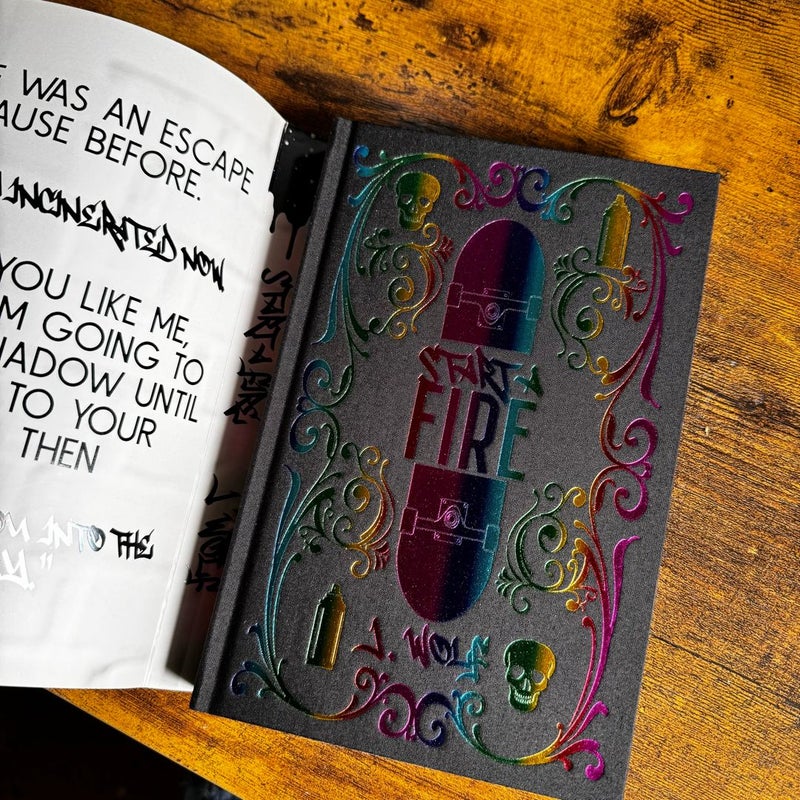 WAS AN ESCAPE
AUSE BEFORE.
INCINERATED NOW
YOU LIKE ME,
M GOING TO
HADOW UNTIL
TO YOUR
THEN
INTO THE
START A FIRE
L. WOLF
START A
FIRE
L. WOLF